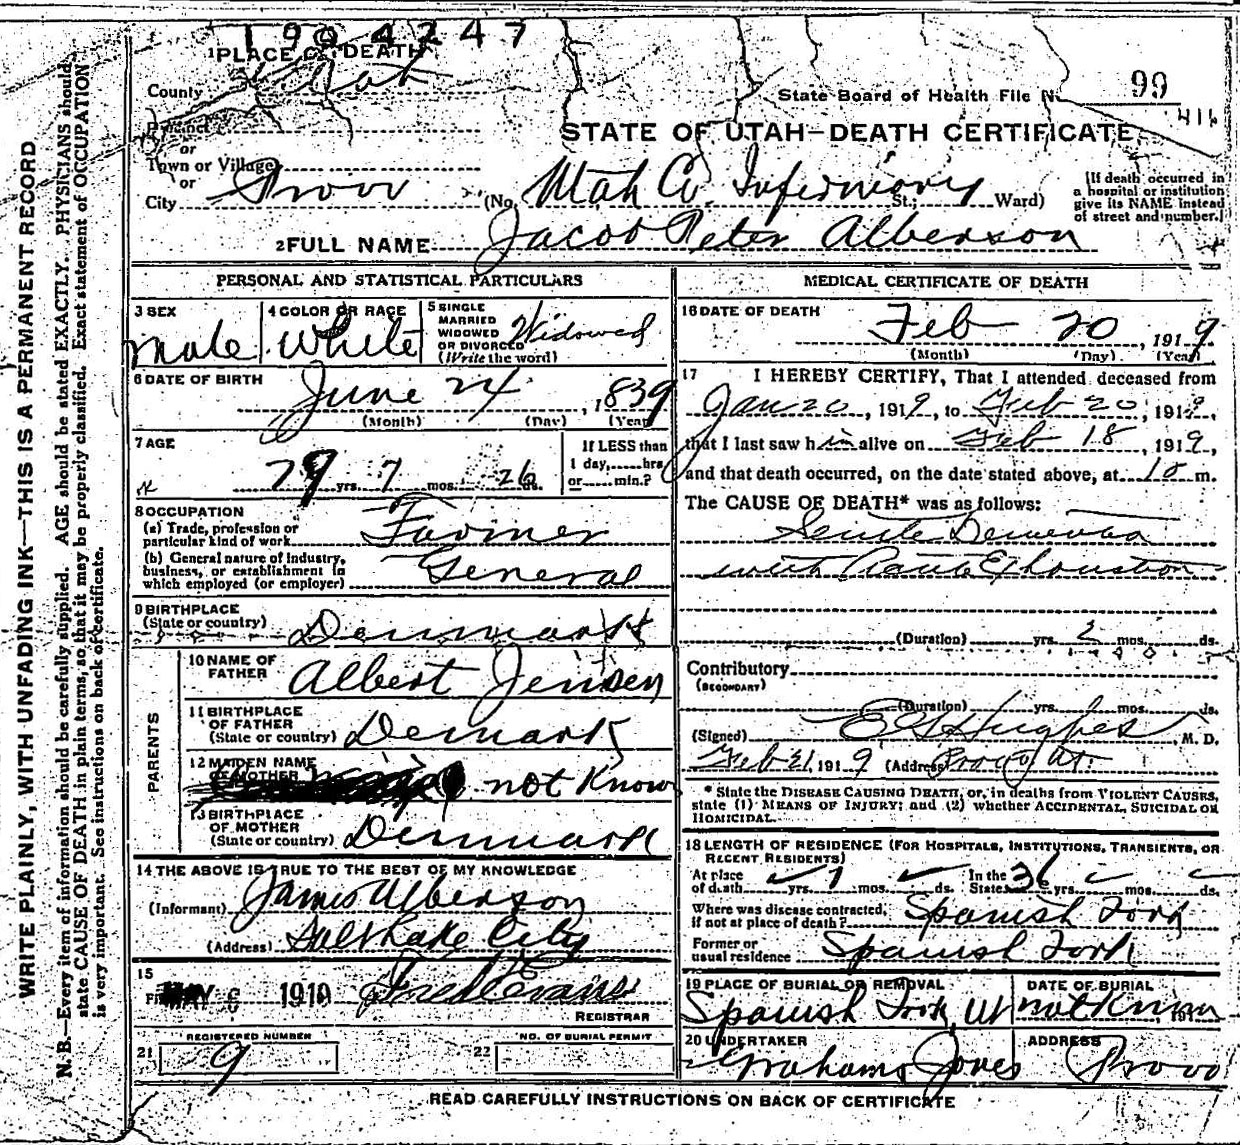 1904247
1 PLACE OF DEATH
County Utah
State Board of Health File No. 99
416
Precinct
or
STATE OF UTAH—DEATH CERTIFICATE
Town or Village
or
City Provo (No. Utah Co. Infermiory St.; Ward)
[If death occurred in
a hospital or institution
give its NAME instead
of street and number.]
2 FULL NAME Jacob Peter Alberson
PERSONAL AND STATISTICAL PARTICULARS
3 SEX male
4 COLOR OR RACE White
5 SINGLE
MARRIED
WIDOWED
OR DIVORCED
(Write the word)
Widowed
6 DATE OF BIRTH
June 24, 1839
(Month) (Day) (Year)
7 AGE
79 yrs. 7 mos. 26 ds.
If LESS than
1 day, hrs.
or min.?
8 OCCUPATION
(a) Trade, profession or
particular kind of work Farmer
(b) General nature of industry,
business, or establishment in
which employed (or employer) General
9 BIRTHPLACE
(State or country) Denmark
PARENTS
10 NAME OF
FATHER Albert Jensen
11 BIRTHPLACE
OF FATHER
(State or country) Denmark
12 MAIDEN NAME
OF MOTHER not Know
13 BIRTHPLACE
OF MOTHER
(State or country) Denmark
14 THE ABOVE IS TRUE TO THE BEST OF MY KNOWLEDGE
(Informant) James Alberson
(Address) Salt Lake City
15
MAY 6 1919 Fred Evans
REGISTRAR
REGISTERED NUMBER
21 9
NO. OF BURIAL PERMIT
22
MEDICAL CERTIFICATE OF DEATH
16 DATE OF DEATH
Feb 20, 1919
(Month) (Day) (Year)
17 I HEREBY CERTIFY, That I attended deceased from
Jan 20, 1919, to Feb 20, 1919,
that I last saw him alive on Feb 18, 1919,
and that death occurred, on the date stated above, at 10 m.
The CAUSE OF DEATH* was as follows:
Senile Dementia
with Acute Exhoustion
(Duration) yrs. 2 mos. ds.
Contributory
(SECONDARY)
(Duration) yrs. mos. ds.
(Signed) E G Hughes, M. D.
Feb 21, 1919 (Address) Provo, Ut.
* State the DISEASE CAUSING DEATH, or, in deaths from VIOLENT CAUSES,
state (1) MEANS OF INJURY; and (2) whether ACCIDENTAL, SUICIDAL OR
HOMICIDAL.
18 LENGTH OF RESIDENCE (FOR HOSPITALS, INSTITUTIONS, TRANSIENTS, OR
RECENT RESIDENTS)
At place
of death yrs. 1 mos. ds. In the State 36 yrs. mos. ds.
Where was disease contracted,
if not at place of death? Spanish Fork
Former or
usual residence Spanish Fork
19 PLACE OF BURIAL OR REMOVAL
Spanish Fork, Ut
DATE OF BURIAL
not Known, 191
20 UNDERTAKER
Grahams Jones
ADDRESS
Provo
READ CAREFULLY INSTRUCTIONS ON BACK OF CERTIFICATE
WRITE PLAINLY, WITH UNFADING INK—THIS IS A PERMANENT RECORD
N. B.—Every item of information should be carefully supplied. AGE should be stated EXACTLY. PHYSICIANS should
state CAUSE OF DEATH in plain terms, so that it may be properly classified. Exact statement of OCCUPATION
is very important. See instructions on back of certificate.